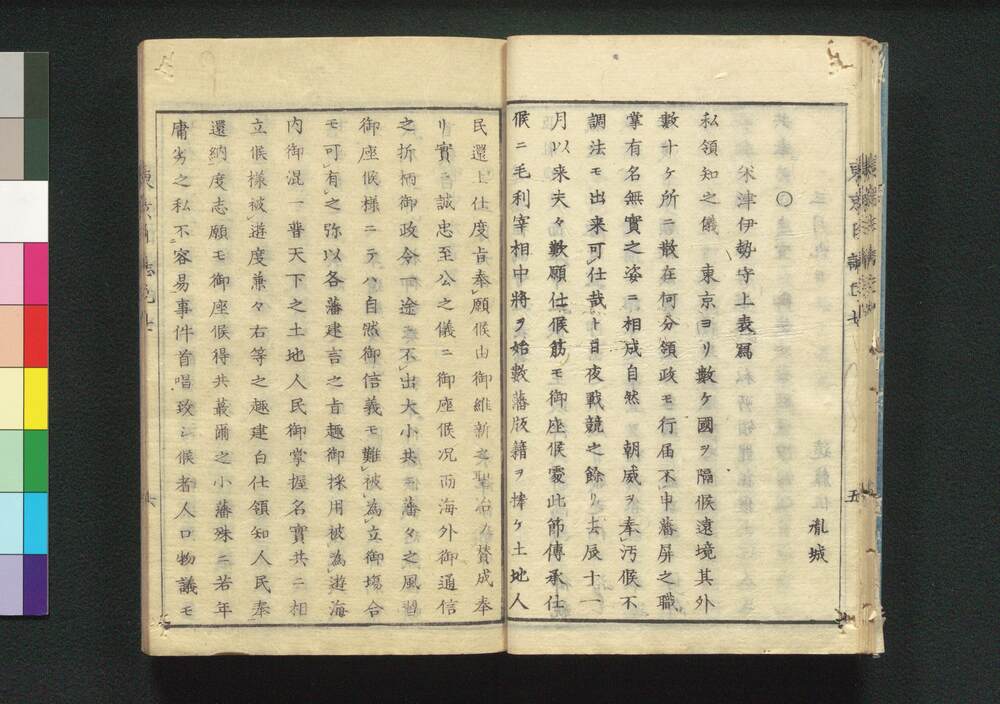 胤城
○
米津伊勢守上表寫
私領知之儀 東京ヨリ數ケ國ヲ隔候遠境其外
數十ケ所ニ散在何分領政モ行届不申藩屏之職
掌有名無實之姿ニ相成自然 朝威ヲ奉汚候不
調法モ出来可仕哉ト日夜戰競之餘リ去辰十一
月以来夫々歎願仕候筋モ御座候處此節傳承仕
候ニ毛利宰相中將ヲ始數藩版籍ヲ捧ケ土地人
民還上仕度旨奉願候由御維新之 賛成奉
リ實ニ誠忠至公之儀ニ御座候况而海外御通信
之折柄御政令一途 不出大小共 藩々之風習
御座候様ニテハ自然御信義モ難被為立御塲合
モ可有之弥以各藩建言之旨趣御採用被為遊海
内御混一普天下之土地人民御掌握名實共ニ相
立候様被遊度兼々右等之趣建白仕領知人民奉
還納度志願モ御座候得共蕞爾之小藩殊ニ若年
庸劣之私不容易事件首唱致シ候者人口物議モ
五